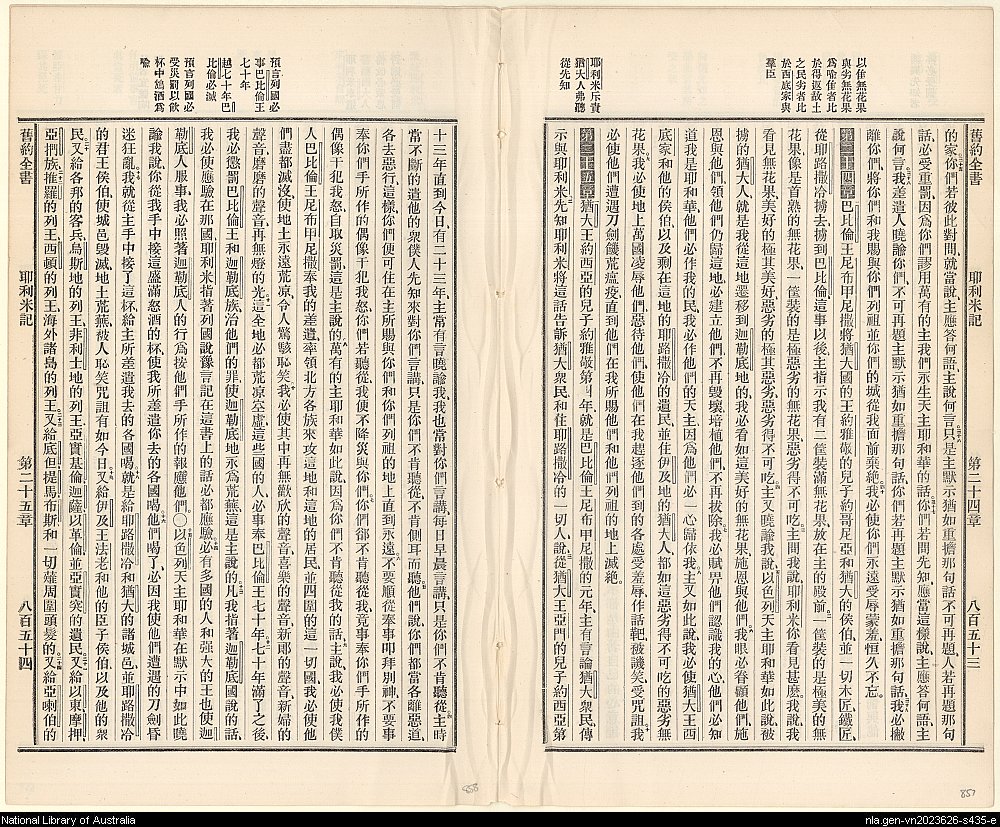 舊約全書 耶利米記 第二十四章 八百五十三
以佳無花果
與劣無花果
爲喻佳者比
於得返故土
之民劣者比
於西底家與
羣臣
耶利米斥責
猶大人弗聽
從先知
的家你們若彼此對問就當說主應答何語主說何言只是主默示猶如重擔那句話不可再題人若再題那句
話必受重罰因爲你們謬用萬有的主我們永生天主耶和華的話你們若問先知應當這樣說主應答何語主
說何言我差遣人曉諭你們不可再題主默示猶如重擔那句話你們若再題主默示猶如重擔那句話我必撇
離你們將你們和我賜與你們列祖並你們的城從我面前棄絕我必使你們永遠受辱蒙羞恒久不忘
第二十四章巴比倫王尼布甲尼撒將猶大國的王約雅敬的兒子約哥尼亞和猶大的侯伯並一切木匠鐵匠
從耶路撒冷擄去擄到巴比倫這事以後主指示我有二筐裝滿無花果放在主的殿前一筐裝的是極美的無
花果像是首熟的無花果一筐裝的是極惡劣的無花果惡劣得不可吃主問我說耶利米你看見甚麼我說我
看見無花果美好的極其美好惡劣的極其惡劣惡劣得不可吃主又曉諭我說以色列天主耶和華如此說被
擄的猶大人就是我從這地遷移到迦勒底地的我必看如這美好的無花果施恩與他們我眼必眷顧他們施
恩與他們領他們仍歸這地必建立他們不再毀壞培植他們不再拔除我必賦畀他們認識我的心他們必知
道我是耶和華他們必作我的民我必作他們的天主因爲他們必一心歸依我主又如此說我必使猶大王西
底家和他的侯伯以及剩在這地的耶路撒冷的遺民並在伊及地的猶大人都如這惡劣得不可吃的惡劣無
花果我必使他們在地上萬國凌辱他們惡待他們使他們在我趕逐他們到的各處受羞辱作話靶被譏笑受咒詛我
必使他們遭遇刀劍饑荒瘟疫直到他們在我所賜他們和他們列祖的地上滅絶
第二十五章猶大王約西亞的兒子約雅敬第四年就是巴比倫王尼布甲尼撒的元年主有言論猶大衆民傳
示與耶利米先知耶利米將這話告訴猶大衆民和住耶路撒冷的一切人說從猶大王亞們的兒子約西亞第
預言列國必
事巴比倫王
七十年
越七十年巴
比倫必滅
預言列國必
受災罰以飲
杯中鴆酒爲
喩
十三年直到今日有二十三年主常有言曉諭我我也當對你們言講每日早晨言講只是你們不肯聽從主時
常不斷的遣他的衆僕人先知來對你們言講只是你們不肯聽從不肯側耳而聽他們說你們都當各離惡道
各去惡行這樣你們便可住在主所賜與你們和你們列祖的地上直到永遠不要順從奉事叩拜別神不要事
奉你們手所作的偶像干犯我怒你們若聽從我便不降災與你們你們卻不肯聽從我竟事奉你們手所作的
偶像干犯我怒自取災罰這是主說的萬有的主耶和華如此說因爲你們不肯聽從我的話主說我必使我僕
人巴比倫王尼布甲尼撒奉我的差遣率領北方各族來攻這地和這地的居民並四圍的這一切國我必使他
們盡都滅沒使地土永遠荒凉令人驚駭恥笑我必使其中再無歡欣的聲音喜樂的聲音新郎的聲音新婦的
聲音磨磨的聲音再無燈的光這全地必都荒凉空虛這些國的人必事奉巴比倫王七十年七十年滿了之後
我必懲罰巴比倫王和迦勒底族治他們的罪使迦勒底地永爲荒蕪這是主說的凡我指著迦勒底國說的話
我必使應驗在那國耶利米指著列國說豫言記在這書上的話必都應驗必有多國的人和强大的王也使迦
勒底人服事我必照著迦勒底人的行爲按他們手所作的報應他們〇以色列天主耶和華在默示中如此曉
諭我說你從我手中接這盛滿怒酒的杯使我所差遣你去的各國喝他們喝了必因我使他們遭遇的刀劍昏
迷狂亂我就從主手中接了這杯給主所差遣我去的各國喝就是給耶路撒冷和猶大的諸城邑並耶路撒冷
的君王侯伯使城邑毀滅地土荒蕪被人恥笑咒詛有如今日又給伊及王法老和他的臣子侯伯以及他的衆
民又給各邦的客兵烏斯地的列王非利士地的列王亞實基倫迦薩以革倫並亞實突的遺民又給以東摩押
亞捫族推羅的列王西頓的列王海外諸島的列王又給底但提馬布斯和一切薙周圍頭髮的又給亞喇伯的
舊約全書 耶利米記 第二十五章 八百五十四
858
857
National Library of Australia
nla.gen-vn2023626-s435-e